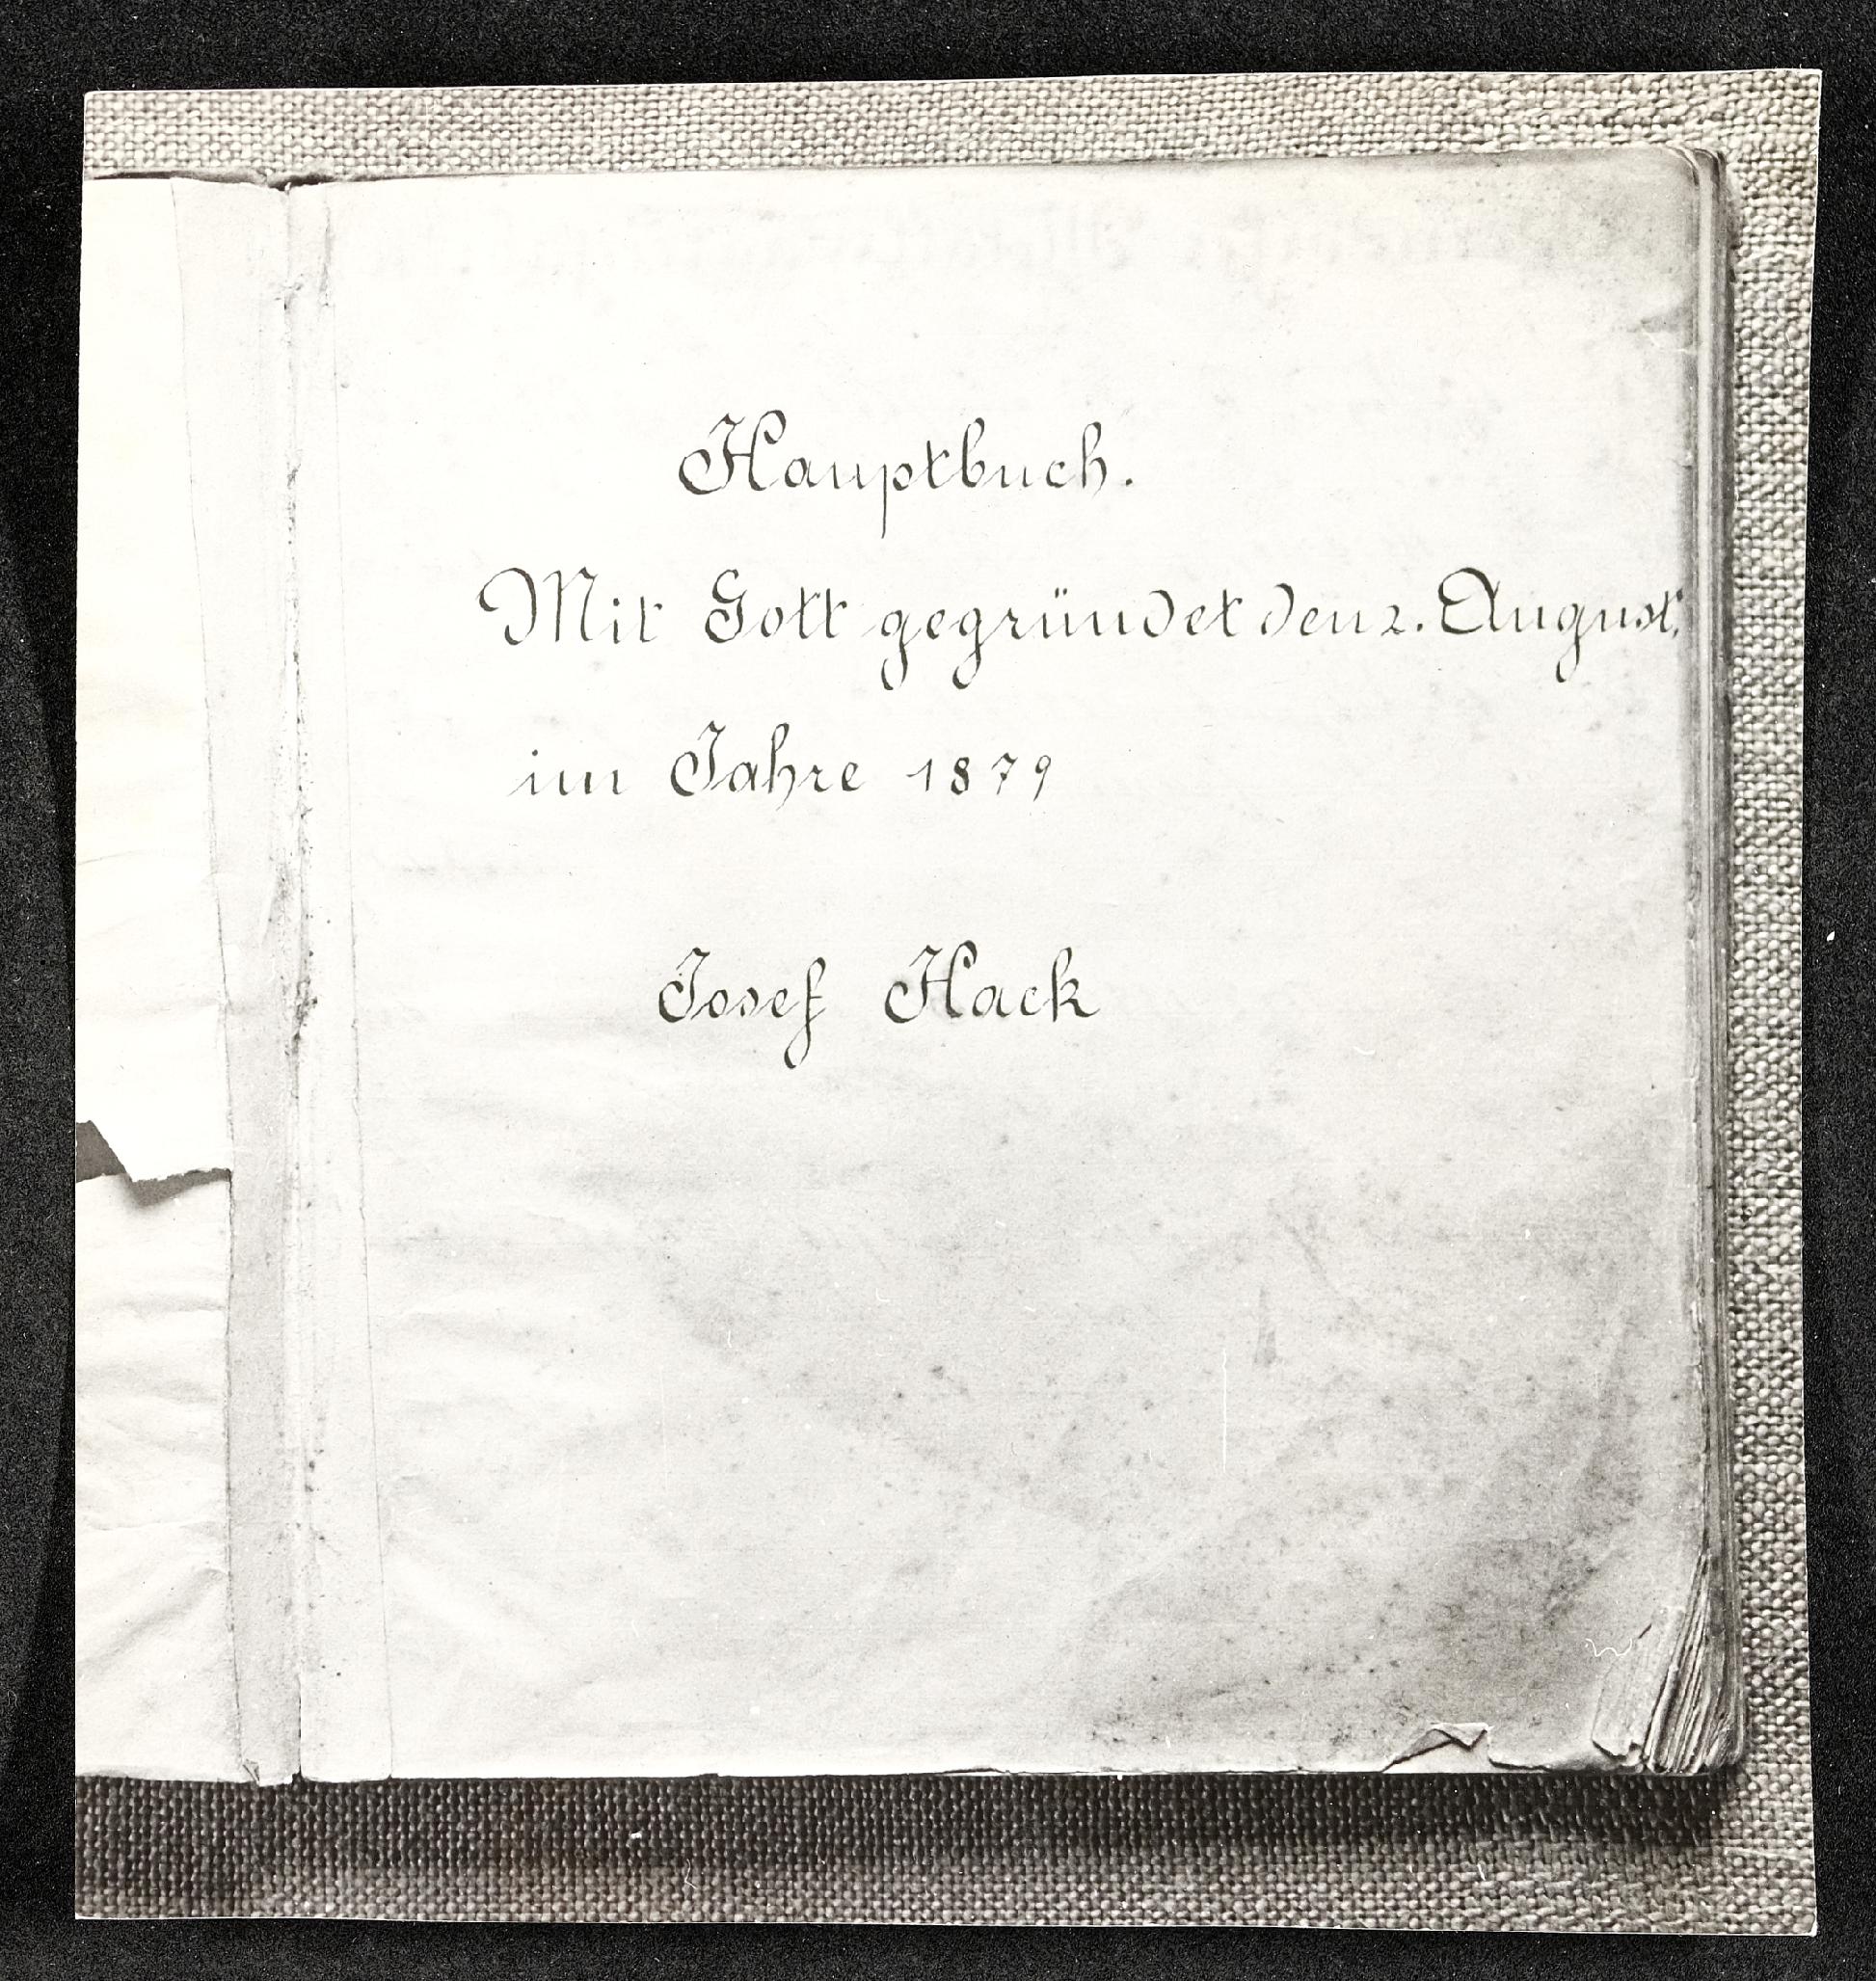 Hauptbuch.
Mit Gott gegründet den 2. August.
im Jahre 1879
Josef Hack